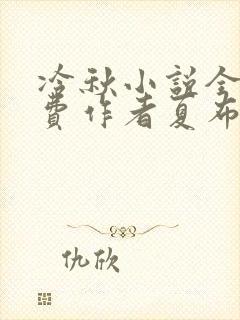 冷秋小説全
費作者夏布
仇欣